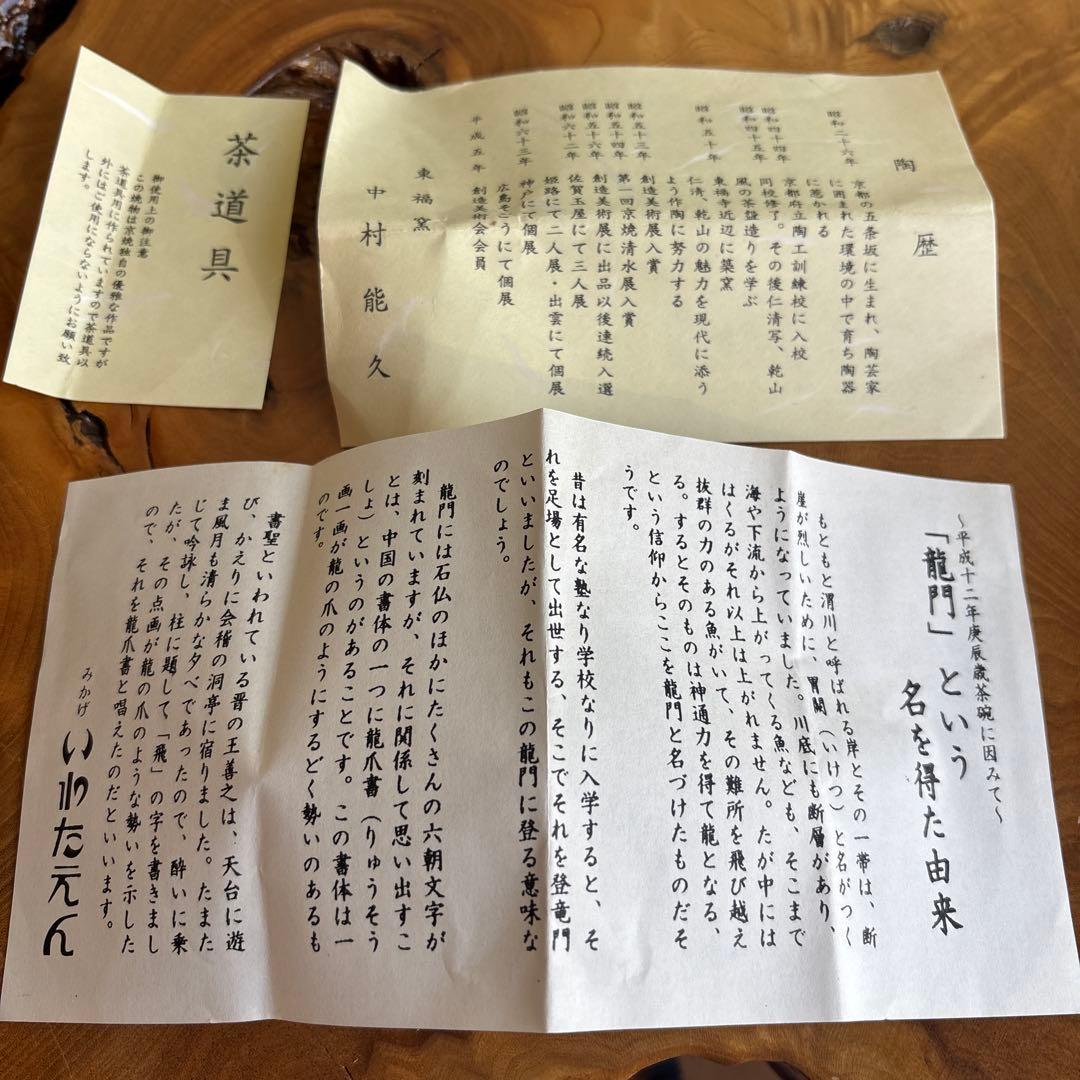 茶道具
御使用上の御注意
この焼物は京焼独自の優雅な作品ですが
茶道具用に作られていますので茶道具以
外にはご使用にならないようにお願い致
します。
陶歴
昭和二十六年 京都の五条坂に生まれ、陶芸家
に囲まれた環境の中で育ち陶器
に惹かれる
昭和四十四年 京都府立陶工訓練校に入校
昭和四十五年 同校修了。その後仁清写、乾山
風の茶盌造りを学ぶ
昭和五十年 東福寺近辺に築窯
仁清、乾山の魅力を現代に添う
よう作陶に努力する
昭和五十三年 創造美術展入賞
昭和五十四年 第一回京焼清水展入賞
昭和五十六年 創造美術展に出品以後連続入選
昭和六十二年 佐賀玉屋にて三人展
姫路にて二人展・出雲にて個展
昭和六十三年 神戸にて個展
広島そごうにて個展
平成五年 創造美術会会員
東福窯
中村能久
~平成十二年庚辰歳茶碗に因みて~
「龍門」という
名を得た由来
もともと渭川と呼ばれる岸とその一帯は、断
崖が烈しいために、胃闕(いけつ)と名がつく
ようになっていました。川底にも断層があり、
海や下流から上がってくる魚なども、そこまで
はくるがそれ以上は上がれません。たが中には
抜群の力のある魚がいて、その難所を飛び越え
る。するとそのものは神通力を得て龍となる、
という信仰からここを龍門と名づけたものだそ
うです。
昔は有名な塾なり学校なりに入学すると、そ
れを足場として出世する、そこでそれを登竜門
といいましたが、それもこの龍門に登る意味な
のでしょう。
龍門には石仏のほかにたくさんの六朝文字が
刻まれていますが、それに関係して思い出すこ
とは、中国の書体の一つに龍爪書(りゅうそう
しょ)というのがあることです。この書体は一
画一画が龍の爪のようにするどく勢いのあるも
のです。
書聖といわれている晋の王善之は、天台に遊
び、かえりに会稽の洞亭に宿りました。たまた
ま風月も清らかな夕べであったので、酔いに乗
じて吟詠し、柱に題して「飛」の字を書きまし
たが、その点画が龍の爪のような勢いを示した
ので、それを龍爪書と唱えたのだといいます。
みかげ
いわた元ん